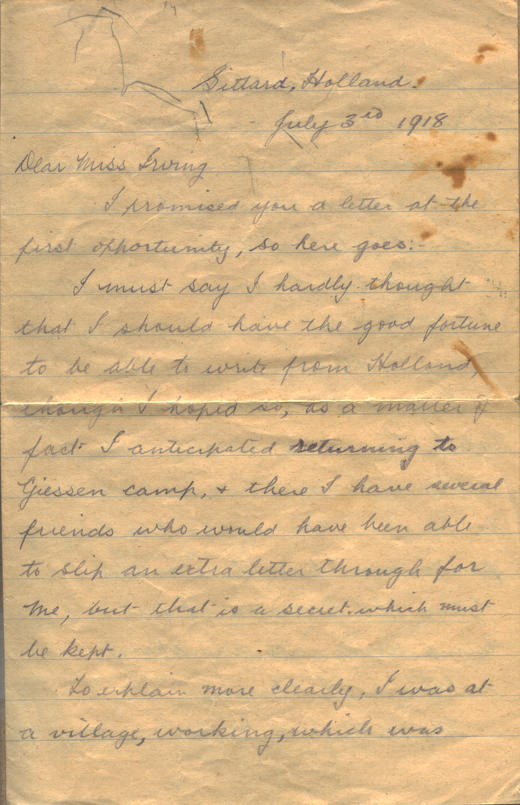 Sittard, Holland.
July 3rd 1918
Dear Miss Irving
I promised you a letter at the
first opportunity, so here goes:-
I must say I hardly thought
that I should have the good fortune
to be able to write from Holland,
though I hoped so, as a matter of
fact I anticipated returning to
Giessen camp, & there I have several
friends who would have been able
to slip an extra letter through for
me, but that is a secret which must
be kept.
To explain more clearly, I was at
a village, working, which was